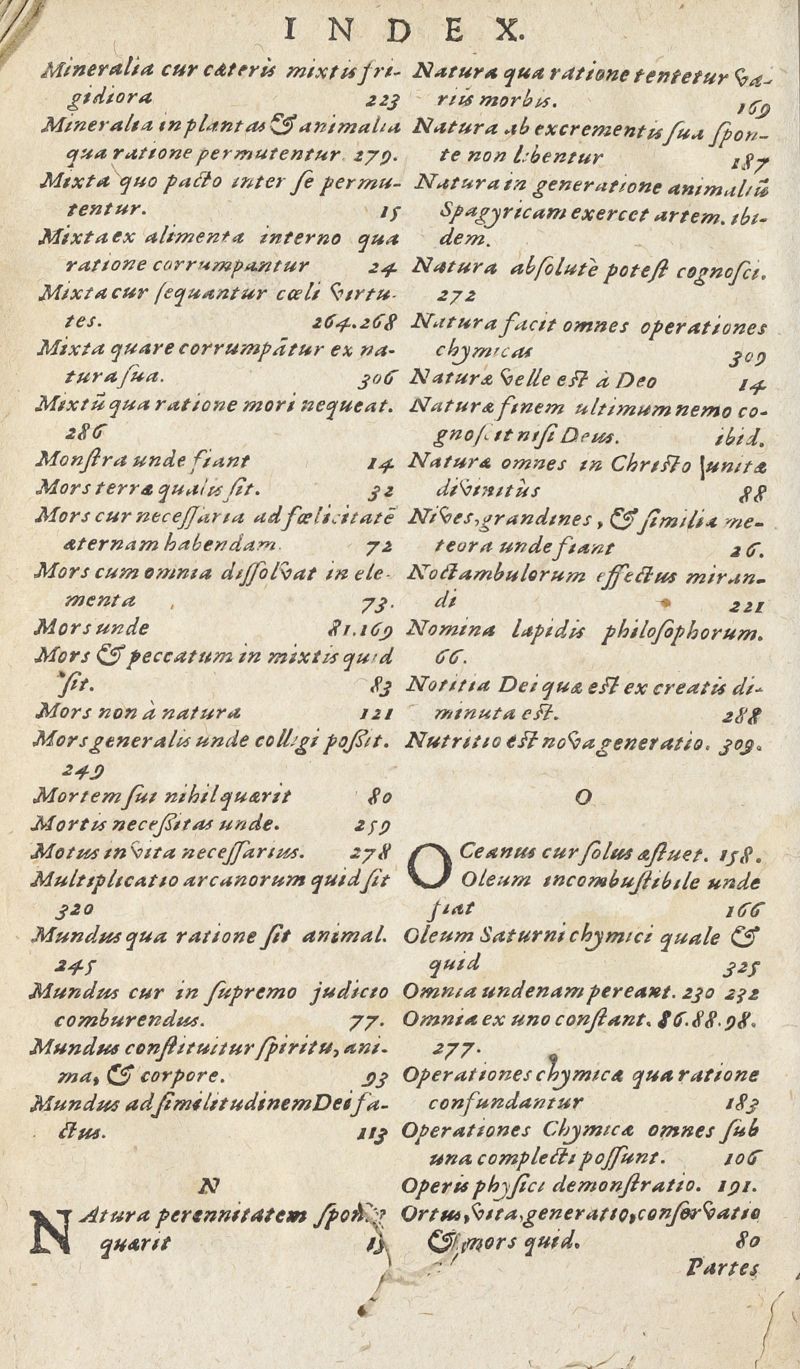 INDEX.
Mineralia cur cæteris mixtis fri-
gidiora 223
Mineralia in plantas & animalia
qua ratione permutentur. 279.
Mixta quo pacto inter se permu-
tentur. 15
Mixta ex alimenta interno qua
ratione corrumpantur 24
Mixta cur sequantur cœli virtu-
tes. 264.268
Mixta quare corrumpātur ex na-
tura sua. 306
Mixtū qua ratione mori nequeat.
286
Monstra unde fiant 14
Mors terræ qualis sit. 32
Mors cur necessaria ad fœlicitatē
æternam habendam. 72
Mors cum omnia dissolvat in ele-
menta 73.
Mors unde 81.169
Mors & peccatum in mixtis quid
sit. 83
Mors non à natura 121
Mors generalis unde colligi possit.
249
Mortem sui nihil quærit 80
Mortis necessitas unde. 259
Motus in vita necessarius. 278
Multiplicatio arcanorum quid sit
320
Mundus qua ratione sit animal.
245
Mundus cur in supremo judicio
comburendus. 77.
Mundus constituitur spiritu, ani-
ma, & corpore. 93
Mundus ad similitudinem Dei fa-
ctus. 113
N
NAtura perennitatem
quærit
Natura qua ratione tentetur va-
riis morbis. 169
Natura ab excrementis sua spon-
te non libentur 187
Natura in generatione animaliū
Spagyricam exercet artem. ibi-
dem.
Natura absolutè potest cognosci.
272
Natura facit omnes operationes
chymicas 309
Naturæ velle est à Deo 14
Naturæ finem ultimum nemo co-
gnoscit nisi Deus. ibid.
Naturæ omnes in Christo unitæ
divinitùs 88
Nives, grandines, & similia me-
teora unde fiant 26.
Noctambulorum effectus miran-
di 221
Nomina lapidis philosophorum.
66.
Notitia Dei quæ est ex creatis di-
minuta est. 288
Nutritio est nova generatio. 309.
O
OCeanus cur solus æstuet. 158.
Oleum incombustibile unde
fiat 166
Oleum Saturni chymici quale &
quid 325
Omnia undenam pereant. 230 232
Omnia ex uno constant. 86.88.98.
277.
Operationes chymicæ qua ratione
confundantur 183
Operationes Chymicæ omnes sub
una complecti possunt. 106
Operis physici demonstratio. 191.
Ortus, vita, generatio, conservatio
& mors quid. 80
Partes